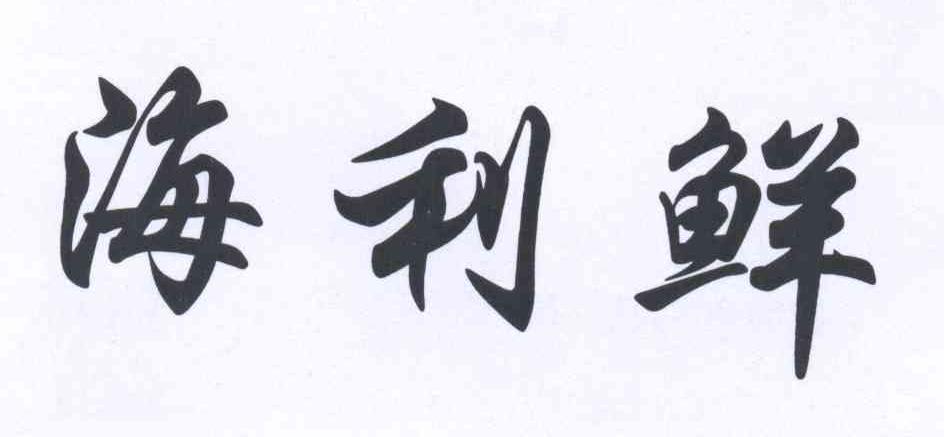 海利鲜